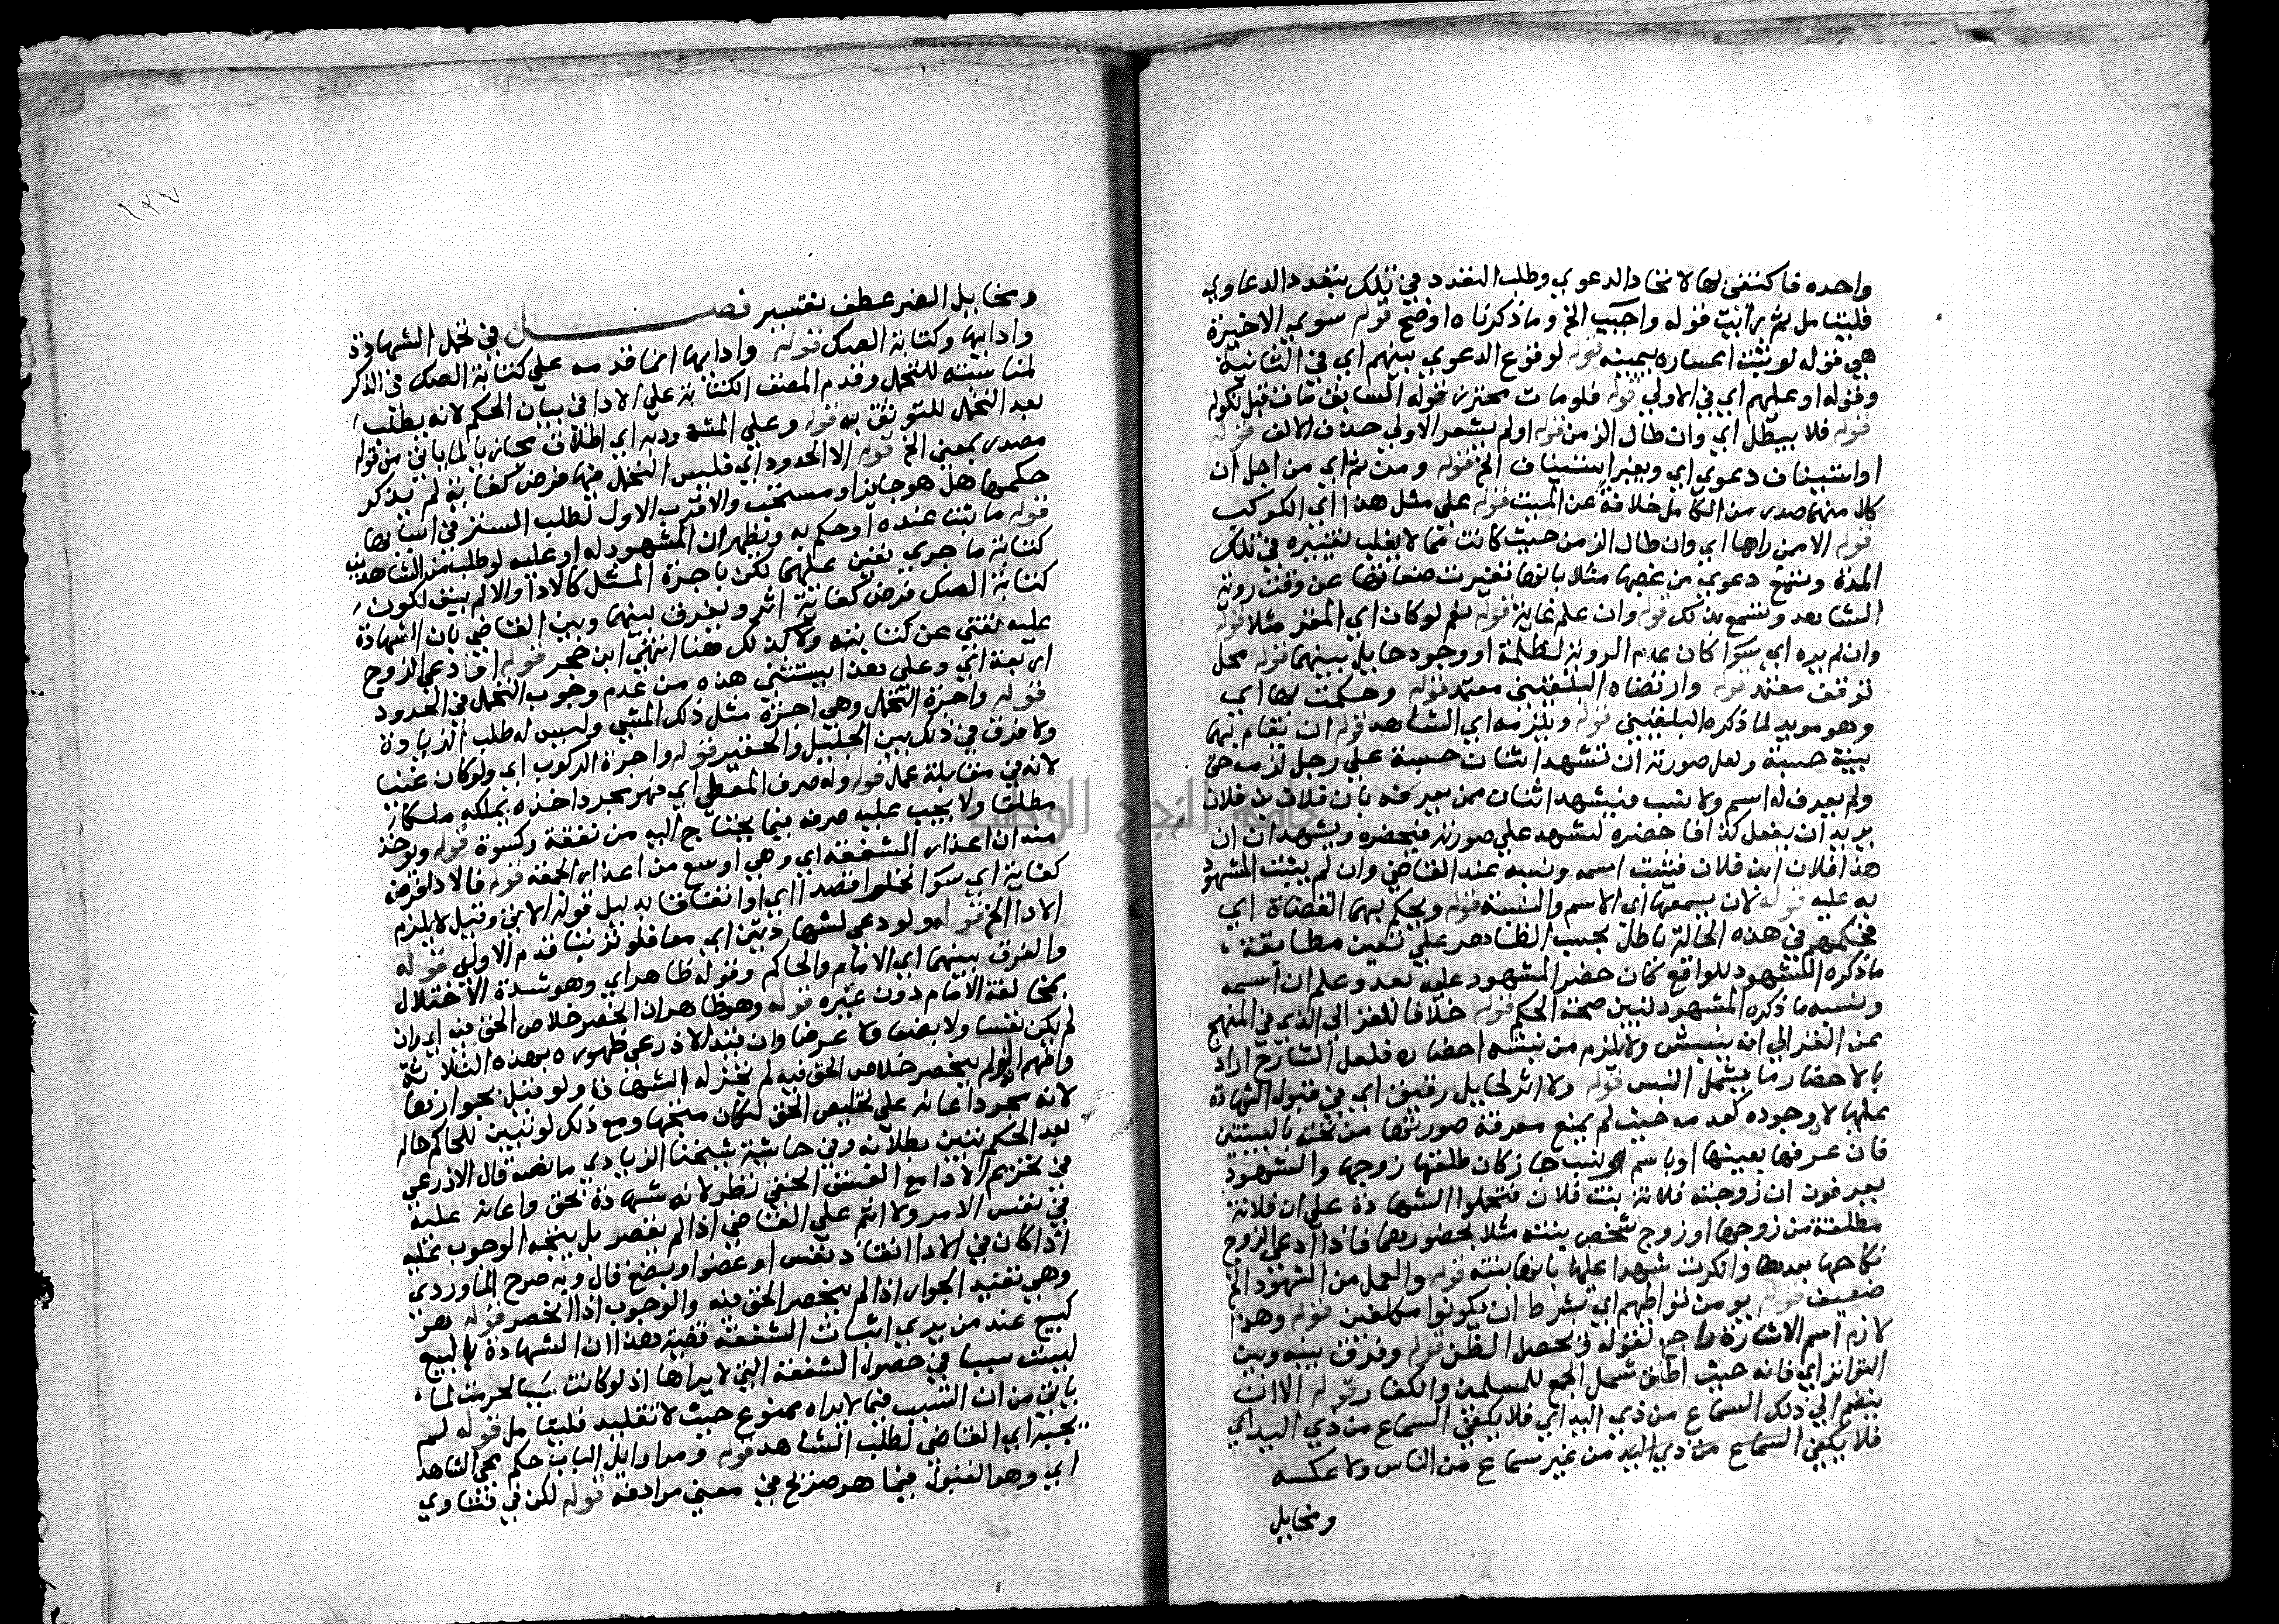 واحده فاكتفى بها لاتحاد الدعوي وطلب التعدد في تلك بتعدد الدعاوي
فليتامل ثم رايت قوله واجيب الخ وما ذكرناه اوضح قوله سوي الاخيرة
هي قوله لو ثبت ايساره بيمينه قوله لوقوع الدعوي بينهم اي في الثانية
وقوله او عليهم اي في الاولي قوله فلو مات محترز قوله السابق مات قبل نكوله
قوله فلا يبطل اي وان طال الزمن قوله اولم يشعر الاولي حذف الالف قوله
او استيناف دعوي اي ويعتبر استيناف الخ قوله ومن ثم اي من اجل ان
كلا منهما صدر من الكامل خلافة عن الميت قوله علي مثل هذا اي الكوكب
قوله الا من راها اي وان طال الزمن حيث كانت مما لا يغلب تغييره في تلك
المدة وتسمع دعوي من غصبها مثلا بانها تغيرت صفاتها عن وقت روية
الشاهد وتسمع بذلك قوله وان علم غايته قوله نعم لو كان اي المقر مثلا قوله
وان لم يره اي سوا كان عدم الروية لظلمة او وجود حايل بينهما قوله محل
توقف معتمد قوله وارتضاه البلقيني معتمد قوله وحكمت بها اي
وهو مويد لما ذكره البلقيني قوله ويلزمه اي الشاهد قوله ان تقام بهما
بينة حسبة ولعل صورته ان تشهد اثنان حسبة علي رجل لزمه حق
ولم يعرف له اسم ولا نسب فيشهد اثنان ممن يعرفه بان فلان بن فلان
يريد ان يفعل كذا فاحضره لنشهد علي صورته فيحضره ويشهدان ان
هذا فلان ابن فلان فتثبت اسمه ونسبه عند القاضي وان لم يثبت المشهود
به عليه قوله لان يسمعها اي الاسم والنسبة قوله ويحكم بهما القضاة اي
فحكمهم في هذه الحالة باطل بحسب الظاهر علي تعين مطابقة
ما ذكره المشهود للواقع فان حضر المشهود عليه بعد وعلم ان اسمه
ونسبه ما ذكره المشهود تبين صحة الحكم قوله خلافا للغزالي الذي في المنهج
عن الغزالي انه ينبش ولا يلزم من نبشه احضاره فلعل الشارح اراد
بالاحضار ما يشمل النبس قوله ولا اثر لحايل رقيق اي في قبول الشهادة
عليها لا وجوده كعدمه حيث لم يمنع معرفة صورتها من تحته بالبينتين
فان عرفها بعينها او باسم او نسب جاز كان طلقها زوجها والشهود
يعرفون ان زوجته فلانة بنت فلان فتحملوا الشهادة علي ان فلانة
مطلقة من زوجها او زوج شخص بنته مثلا بحضورهما فاذا ادعي الزوج
نكاحها بعدها وانكرت شهدا عليها بانها بنته قوله والعمل من الشهود الخ
ضعيف قوله يومن تواطيهم اي بشرط ان يكونوا مكلفين قوله وهذا
لازم اسم الاشارة راجع لقوله في يحصل الظن قوله وفرق بينه وبين
التواتر اي فانه حيث اطلق شمل الجمع للمسلمين والكفار قوله الا ان
ينضم الي ذلك السماع من ذي اليد اي فلا يكفي السماع من ذي اليد اي
فلا يكفي السماع من ذي اليد من غير سماع من الناس ولا عكسه
ومخايل
١٣٧
ومخايل الضر عطف تفسير فصل في تحمل الشهادة
وادايها وكتابة الصك قوله وادايها انما قدمه علي كتابة الصك في الذكر
لمناسبته للتحمل وقدم المصنف الكتابة علي الادا في بيان الحكم لانه يطلب
بعد التحمل للتوثق به قوله وعلي المشهود به اي اطلاق مجاز بالما ياتي من قوله
مصدر بمعني الخ قوله الا الحدود اي فليس التحمل فيها فرض كفاية لم يذكر
حكمها هل هو جايز او مستحب والاقرب الاول لطلب الستر في اسبابها
قوله ما ثبت عنده او حكم به ويظهر ان المشهود له او عليه لو طلب من الشاهدين
كتابة ما جري تعين عليهما لكن باجرة المثل كالادا والالم يبق لكون
كتابة الصك فرض كفاية اثر ويفرق بينهما وبين القاضي بان الشهادة
عليه تغني عن كتابته ولا كذلك هنا انتهي ابن حجر قوله اذا دعي الزوج
اربعة اي وعلي هذا يستثني هذه من عدم وجوب التحمل في الحدود
قوله واجرة التحمل وهي اجرة مثل ذلك المشي وليس له طلب الزيادة
ولا فرق في ذلك بين الجليل والحقير قوله واجرة الركوب اي ولو كان غنيا
لانه في مقابلة عمل قوله وله صرف المعطي اي فهو بمجرد اخذه يملكه ملكا
مطلقا ولا يجب عليه صرفه فيما يحتاج اليه من نفقة وكسوة قوله ويوخذ
منه ان اعذار الشفعة اي وهي اوسع من اعذار الجمعة قوله فالادا فرض
كفاية اي سوا تحملوا قصدا اي او اتفاقا بدليل قوله الاتي وقيل لا يلزم
الادا الخ قوله ولو دعي لشهادتين اي معا فلو ترتبا قدم الاولي قوله
والفرق بينهما اي الامام والحاكم وقوله ظاهر اي وهو شدة الاختلال
بمخالفة الامام دون غيره قوله وهو ظاهر ان انحصر خلاص الحق فيه اي وان
لم يكن نفسا ولا بضعا ولا عرضا وان قيد الاذرعي ظهوره بهذه الثلاثة
وافهم انه لو لم ينحصر خلاص الحق فيه لم تجز له الشهادة ولو قيل بجوازها
لانه مجرد اعانة علي تخليص الحق لكان متجها ومع ذلك لو تبين للحاكم حاله
بعد الحكم تبين بطلانه وفي حاشية شيخنا الزيادي ما نصه قال الاذرعي
في تحريم الادا مع الفسق الخفي نظر لانه شهادة بحق واعانة عليه
في نفس الامر ولا اثم علي القاضي اذا لم يقصر بل يتجه الوجوب عليه
اذا كان في الادا انقاذ نفس او عضو او بضع قال وبه صرح الماوردي
وهي تقييد الجواز اذا لم ينحصر الحق فيه والوجوب اذا انحصر قوله بعز
كبيع عند من يري اثبات الشفعة قضية هذا ان الشهادة بالبيع
ليست سببا في حصول الشفعة التي لا يراها اذ لو كانت سببا لحرمت لما
ياتي من ان التسبب فيما لا يراه ممنوع حيث لا تقليد فليتامل قوله لم
يجبه اي القاضي لطلب الشاهد قوله ومر اوايل الباب حكم مجي الشاهد
اي وهو القبول فيما هو صريح في معني مرادفه قوله لكن في فتاوي